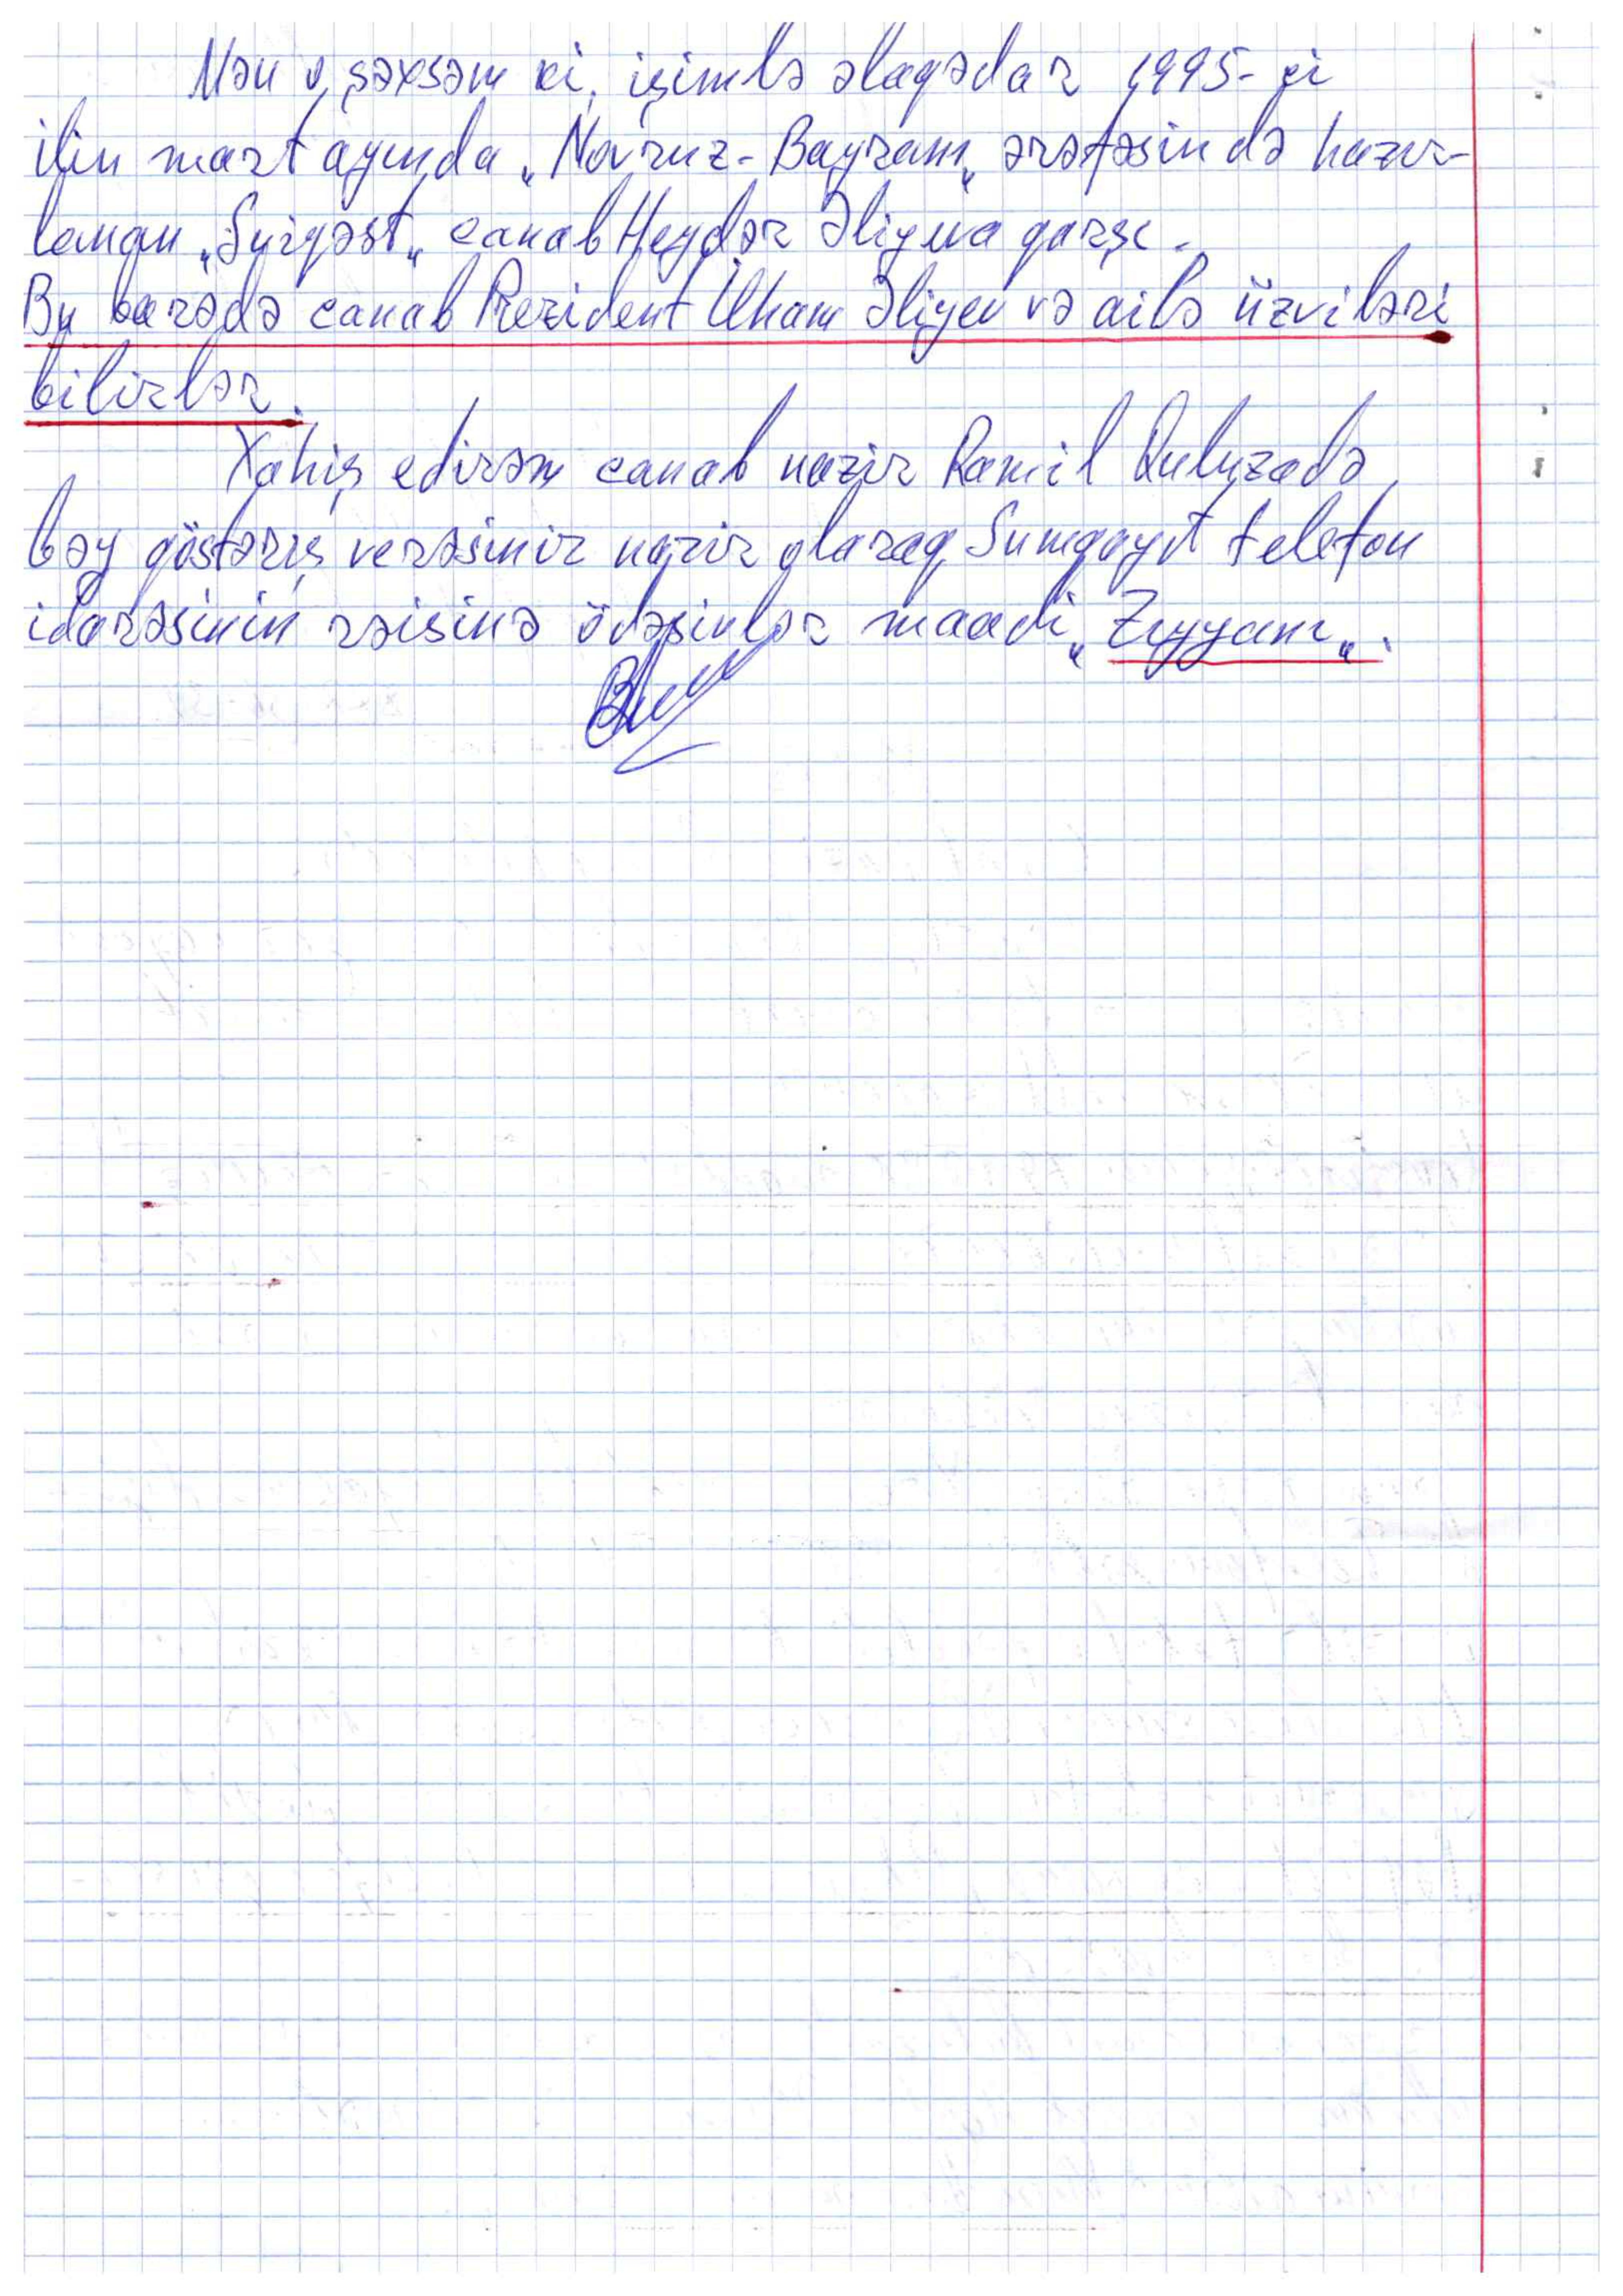 Mən o şəxsəm ki, işimlə əlaqədar 1995-ci
ilin mart ayında „Novruz-Bayramı„ ərəfəsində hazır-
lanan „Suiqəst„ canab Heydər Əliyevə qarşı.
Bu barədə canab Prezident İlham Əliyev və ailə üzviləri
bilirlər.
Xahiş edirəm canab nazir Ramil Quluzadə
bəy göstəriş verəsiniz nazir olaraq Sumqayıt telefon
idarəsinin rəisinə ödəsinlər maadi „Zıyyanı„.